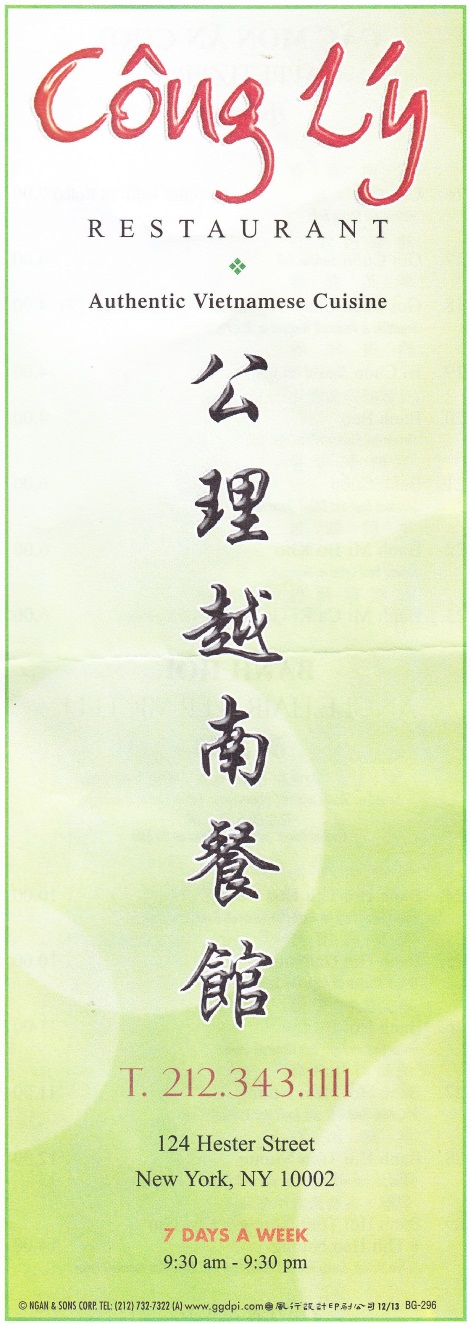 Công Lý
RESTAURANT
Authentic Vietnamese Cuisine
公
理
越
南
餐
館
T. 212.343.1111
124 Hester Street
New York, NY 10002
7 DAYS A WEEK
9:30 am - 9:30 pm
© NGAN & SONS CORP. TEL: (212) 732-7322 (A) www.ggdpi.com 風行設計印刷公司 12/13 BG-296